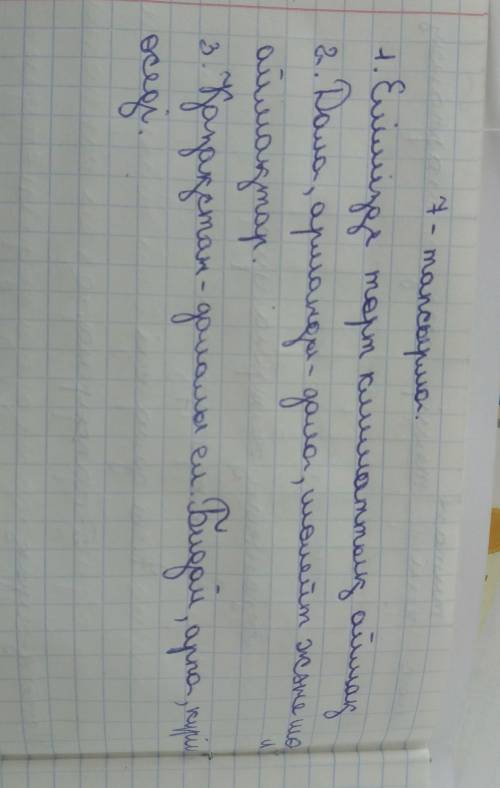 7 - тапсырма.
1. Елімізде төрт климаттық аймақ
2. Дала, орманды - дала, шөлейт және шө
аймақтар.
3. Қазақстан - далалы ел. Бидай, арпа, күріш
өседі.